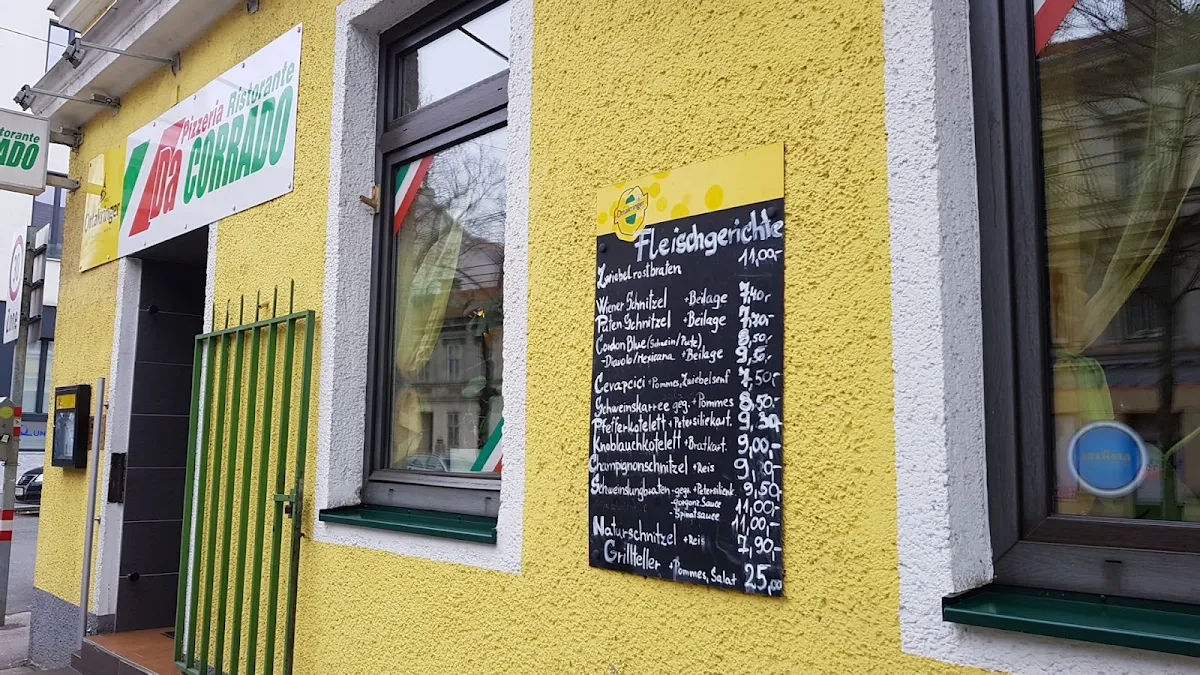 Pizzeria Ristorante
Da CORRADO
Ottakringer
Ottakringer
Fleischgerichte
Zwiebelrostbraten 11,00-
Wiener Schnitzel + Beilage 7,40,-
Puten Schnitzel + Beilage 7,70,-
Cordon Bleu (Schwein/Pute), 8,50,-
- Diavolo/Mexicana + Beilage
Cevapcici + Pommes, Zwiebelsenf 7,50,-
Schweinskarree geg. + Pommes 8,50,-
Pfefferkotelett + Petersilienkart.
Knoblauchkotelett + Bratkart. 9,00,-
Champignonschnitzel + Reis
Schweinslungbraten - geg. + Petersilienk. 9,50,-
- gorgonz Sauce 11,00,-
- Spinatsauce 11,00,-
Naturschnitzel + Reis 7,90,-
Grillteller + Pommes, Salat 25,00
30